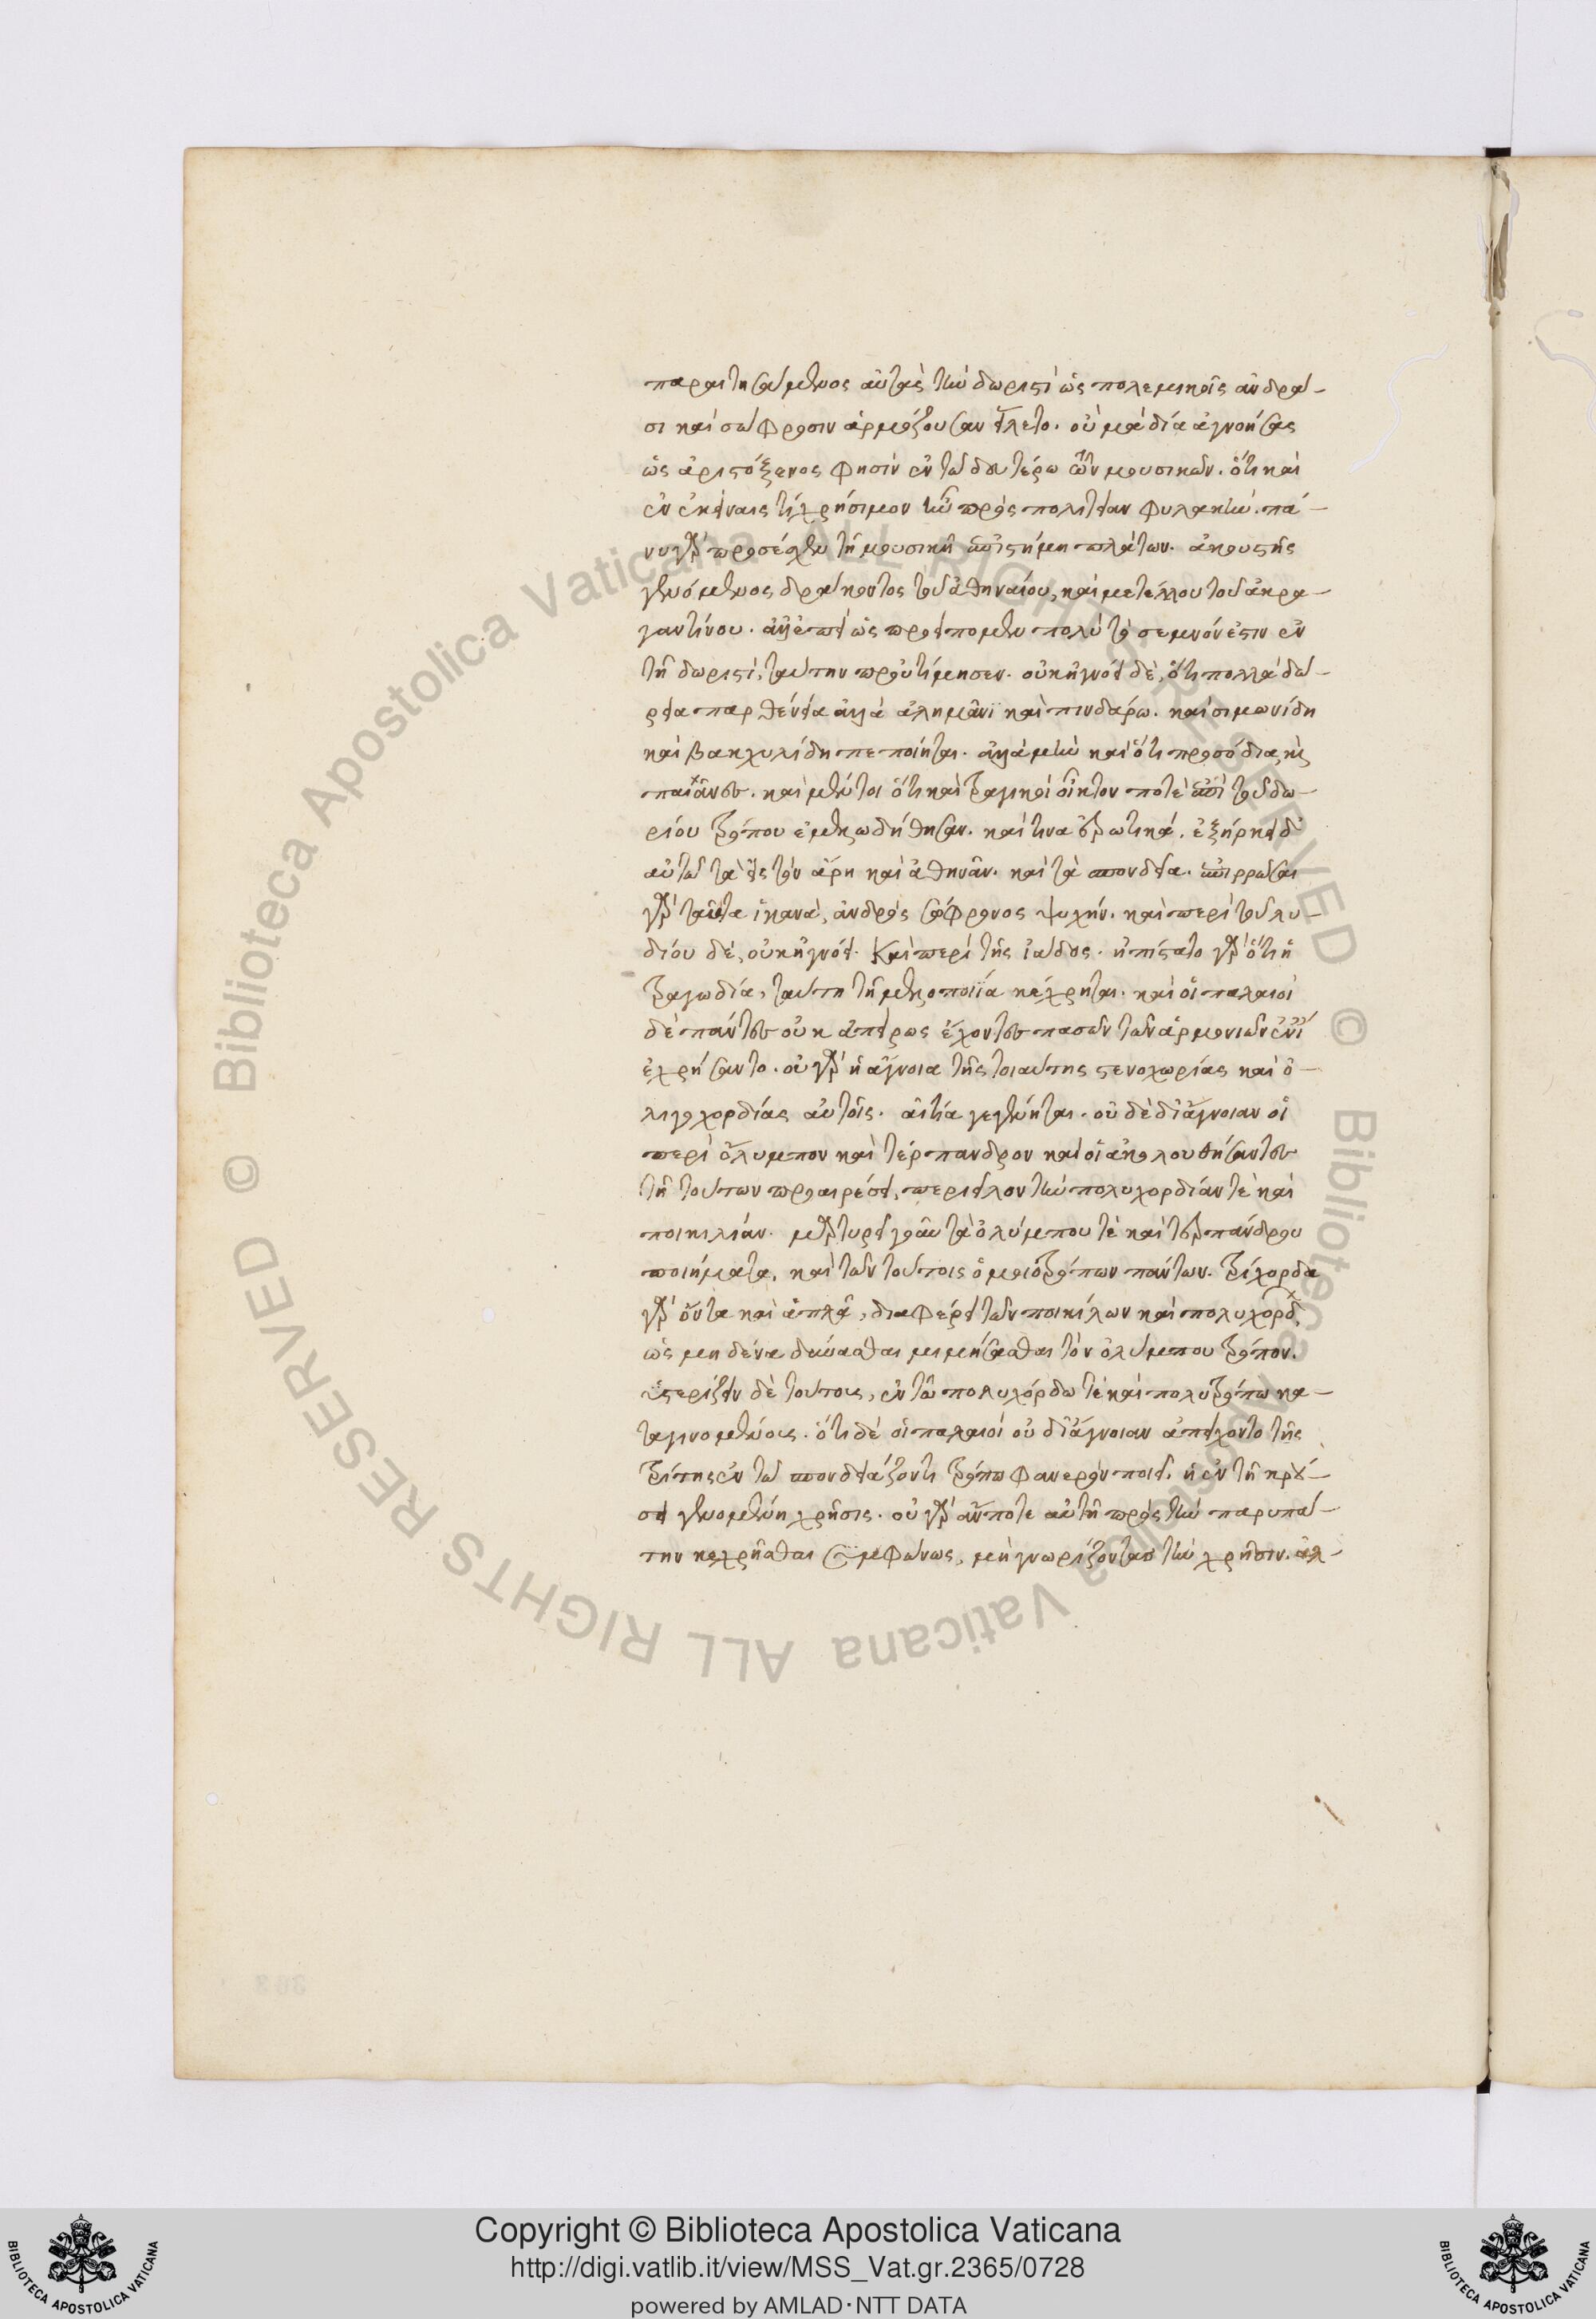 παραιτησάμενος αὐτὰς τὴν δωριστὶ ὡς πολεμικοῖς ἀνδρά-
σι καὶ σώφροσιν ἁρμόζουσαν εἵλετο. οὐ μὰ δία ἀγνοήσας
ὡς ἀριστόξενος φησὶν ἐν τῶ δευτέρω τῶν μουσικῶν. ὅτι καὶ
ἐν ἐκείναις τὶ χρήσιμον ἦν πρὸς πολιτείαν φυλακὴν. πά-
νυ γὰρ προσέσχεν τῆ μουσικῆ ἐπιστήμη πλάτων. ἀκουστὴς
γενόμενος δράκοντος τοῦ ἀθηναίου, καὶ μετέλλου τοῦ ἀκρα-
γαντίνου. ἀλλ' ἐπεὶ ὡς προείπομεν πολὺ τὸ σεμνόν ἐστιν ἐν
τῆ δωριστὶ, ταύτην προυτίμησεν. οὐκ ἠγνόει δὲ, ὅτι πολλὰ δώ-
ρεια παρθένεια ἀλλὰ ἀλκμᾶνϊ καὶ πινδάρω. καὶ σιμωνίδη
καὶ βακχυλίδη πεποίηται. ἀλλὰ μὴν καὶ ὅτι προσόδια, καὶ
παιᾶνες. καὶ μέντοι ὅτι καὶ τραγικοὶ οἶκτον ποτὲ ἐπὶ τοῦ δω-
ρίου τρόπου ἐμελωδήθησαν. καὶ τινα ἐρωτικά. ἐξήρκει δ'
αὐτῶ τὰ εἰς τὸν ἄρη καὶ ἀθηνᾶν. καὶ τὰ σπονδεῖα. ἐπιρρῶσαι
γὰρ ταῦτα ἱκανὰ, ἀνδρὸς σώφρονος ψυχήν. καὶ περὶ τοῦ λυ-
δίου δὲ, οὐκ ἠγνόει. Καὶ περὶ τῆς ἰάδος. ἠπίστατο γὰρ ὅτι ἡ
τραγωδία, ταύτη τῆ μελοποιΐα κέχρηται. καὶ οἱ παλαιοὶ
δὲ πάντες οὐκ ἀπείρως ἔχοντες πασῶν τῶν ἁρμονιῶν ἐνί
ἐχρήσαντο. οὐ γὰρ ἡ ἄγνοια τῆς τοιαύτης στενοχωρίας καὶ ὀ-
λιγοχορδίας αὐτοῖς. αἰτία γεγένηται. οὐδὲ δι' ἄγνοιαν οἱ
περὶ ὄλυμπον καὶ τέρπανδρον καὶ οἱ ἀκολουθήσαντες
τῆ τούτων προαιρέσει, περιεῖλον τὴν πολυχορδίαν τὲ καὶ
ποικιλίαν. μαρτυρεῖ γοῦν τὰ ὀλύμπου τὲ καὶ τερπάνδρου
ποιήματα, καὶ τῶν τούτοις ὁμοιοτρόπων πάντων. τρίχορδα
γὰρ ὄντα καὶ ἁπλᾶ, διαφέρει τῶν ποικίλων καὶ πολυχόρδ
ὡς μηδένα δύνασθαι μιμήσασθαι τὸν ὀλύμπου τρόπον.
ὑστερίζειν δὲ τούτους, ἐν τῶ πολυχόρδω τὲ καὶ πολυτρόπω κα-
ταγινομένους. ὅτι δὲ οἱ παλαιοὶ οὐ δι' ἄγνοιαν ἀπείχοντο τῆς
τρίτης ἐν τῶ σπονδειάζοντι τρόπω φανερὸν ποιεῖ. ἡ ἐν τῆ κρού-
σει γενομένη χρῆσις. οὐ γὰρ ἄν ποτε αὐτῆ πρὸς τὴν παρυπά-
την κεχρῆσθαι συμφώνως, μὴ γνωρίζοντας τὴν χρῆσιν. ἀλ-
Copyright © Biblioteca Apostolica Vaticana
http://digi.vatlib.it/view/MSS_Vat.gr.2365/0728
powered by AMLAD·NTT DATA
BIBLIOTECA APOSTOLICA VATICANA
BIBLIOTECA APOSTOLICA VATICANA
© Biblioteca Apostolica Vaticana ALL RIGHTS RESERVED
© Biblioteca Apostolica Vaticana ALL RIGHTS RESERVED